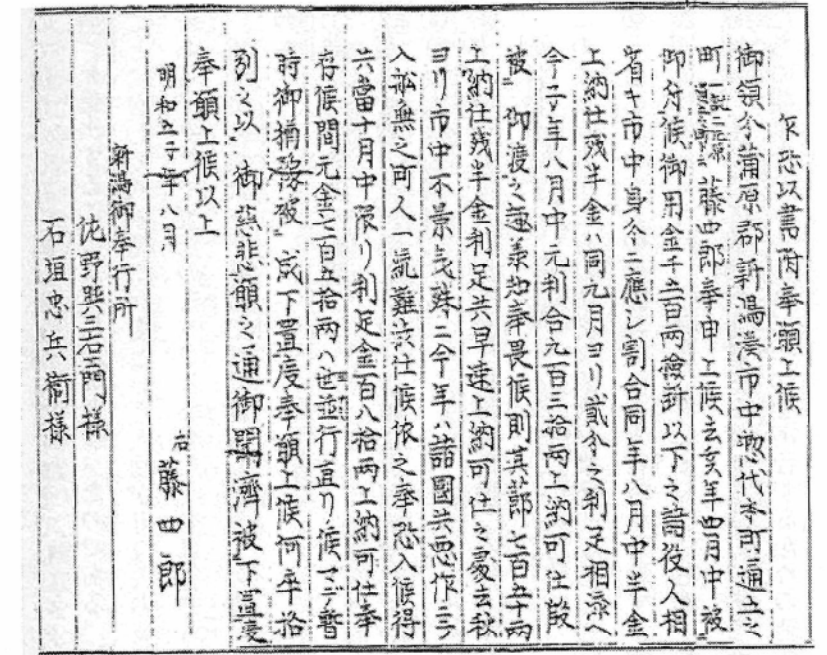 乍恐以書附奉願上候
御領分蒲原郡新潟湊市中惣代本町通五之
町藤四郎奉申上候去亥年四月中被
仰付候御用金千五百両検断以下之諸役人相
省キ市中身分ニ應シ割合同年八月中半金
上納仕残半金ハ同九月ヨリ貳分之利足相添へ
今子年八月中元利合九百三拾両上納可仕段
被 御渡之趣承知奉畏候則其節七百五十両
上納仕残半金利足共早速上納可仕之處去秋
ヨリ市中不景気殊ニ今年ハ諸國共悪作ニテ
入舩無之町人一統難渋仕候依之奉恐入候得
共當十月中限リ利足金百八拾両上納可仕奉
存候間元金七百五拾両ハ世並行直リ候マデ暫
時御猶豫被 成下置度奉願上候何卒格
別之以 御慈悲願之通御聞済被下置度
奉願上候以上
明和五子年八月
右 藤四郎
新潟御奉行所
佐野與三右エ門様
石垣忠兵衛様